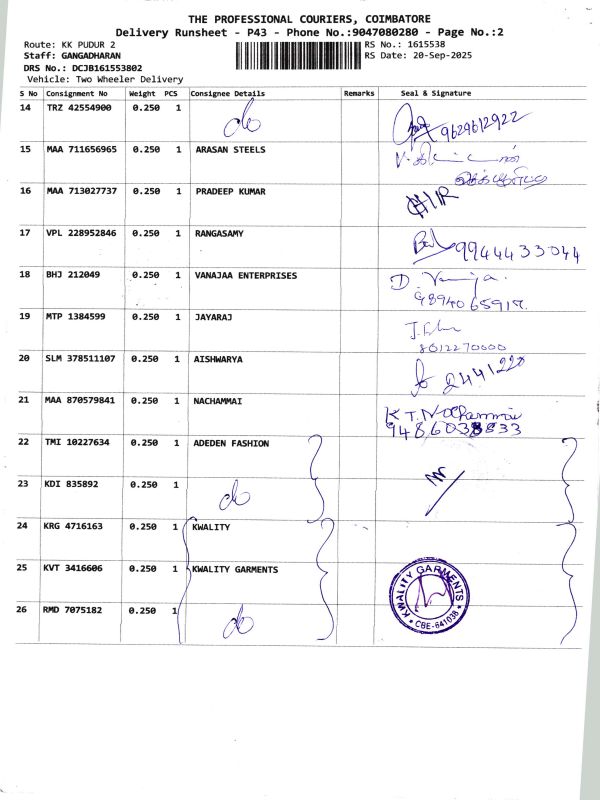 THE PROFESSIONAL COURIERS, COIMBATORE
Delivery Runsheet - P43 - Phone No.:9047080280 - Page No.:2
Route: KK PUDUR 2
RS No.: 1615538
Staff: GANGADHARAN
RS Date: 20-Sep-2025
DRS No.: DCJB161553802
Vehicle: Two Wheeler Delivery
S No Consignment No Weight PCS Consignee Details Remarks Seal & Signature
14 TRZ 42554900 0.250 1 do 9629612922
15 MAA 711656965 0.250 1 ARASAN STEELS
16 MAA 713027737 0.250 1 PRADEEP KUMAR
17 VPL 228952846 0.250 1 RANGASAMY 9944433044
18 BHJ 212049 0.250 1 VANAJAA ENTERPRISES
19 MTP 1384599 0.250 1 JAYARAJ
8012270000
20 SLM 378511107 0.250 1 AISHWARYA
21 MAA 870579841 0.250 1 NACHAMMAI
22 TMI 10227634 0.250 1 ADEDEN FASHION
23 KDI 835892 0.250 1 do
24 KRG 4716163 0.250 1 KWALITY
25 KVT 3416606 0.250 1 KWALITY GARMENTS
KWALITY GARMENTS
* CBE-641038 *
26 RMD 7075182 0.250 1 do